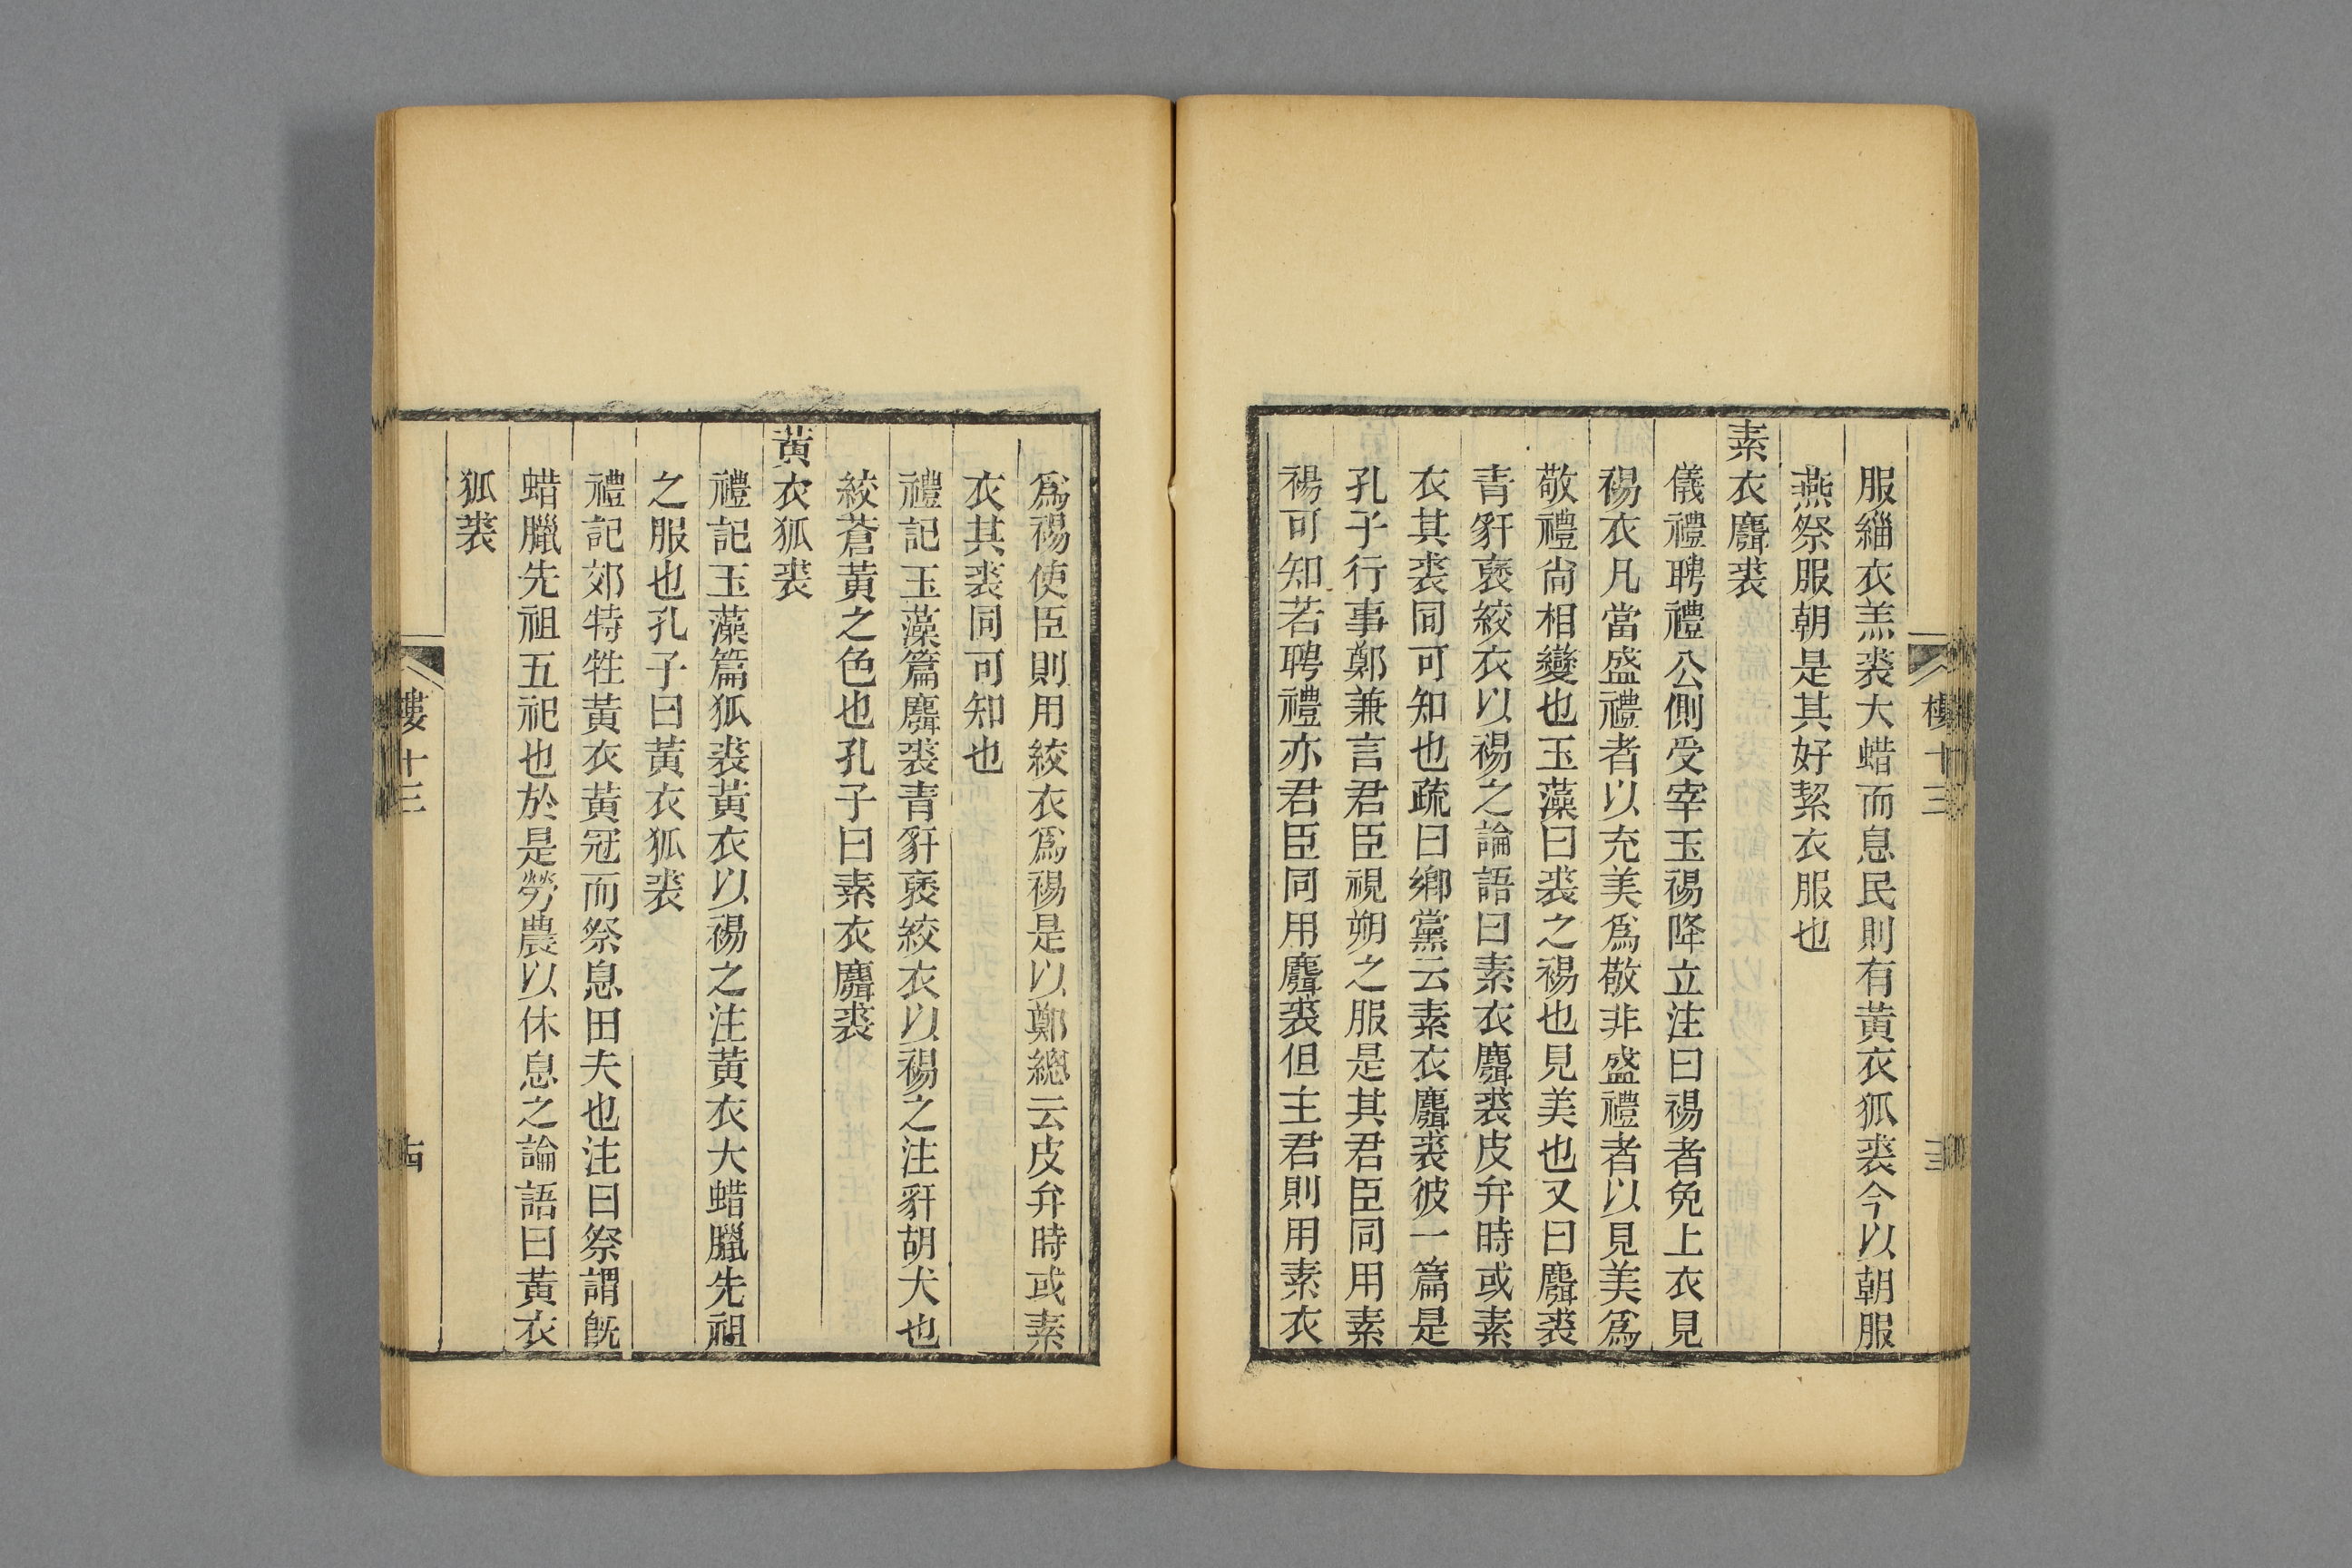 樓十三
三
服緇衣羔裘大蜡而息民則有黃衣狐裘今以朝服
燕祭服朝是其好絜衣服也
素衣麑裘
儀禮聘禮公側受宰玉裼降立注曰裼者免上衣見
裼衣凡當盛禮者以充美爲敬非盛禮者以見美爲
敬禮尙相變也玉藻曰裘之裼也見美也又曰麛裘
青豻褎絞衣以裼之論語曰素衣麛裘皮弁時或素
衣其裘同可知也疏曰鄉黨云素衣麛裘彼一篇是
孔子行事鄭兼言君臣視朔之服是其君臣同用素
裼可知若聘禮亦君臣同用麛裘但主君則用素衣
爲裼使臣則用絞衣爲裼是以鄭總云皮弁時或素
衣其裘同可知也
禮記玉藻篇麛裘青豻褎絞衣以裼之注豻胡犬也
絞蒼黃之色也孔子曰素衣麛裘
黃衣狐裘
禮記玉藻篇狐裘黃衣以裼之注黃衣大蜡臘先祖
之服也孔子曰黃衣狐裘
禮記郊特牲黃衣黃冠而祭息田夫也注曰祭謂旣
蜡臘先祖五祀也於是勞農以休息之論語曰黃衣
狐裘
樓十三